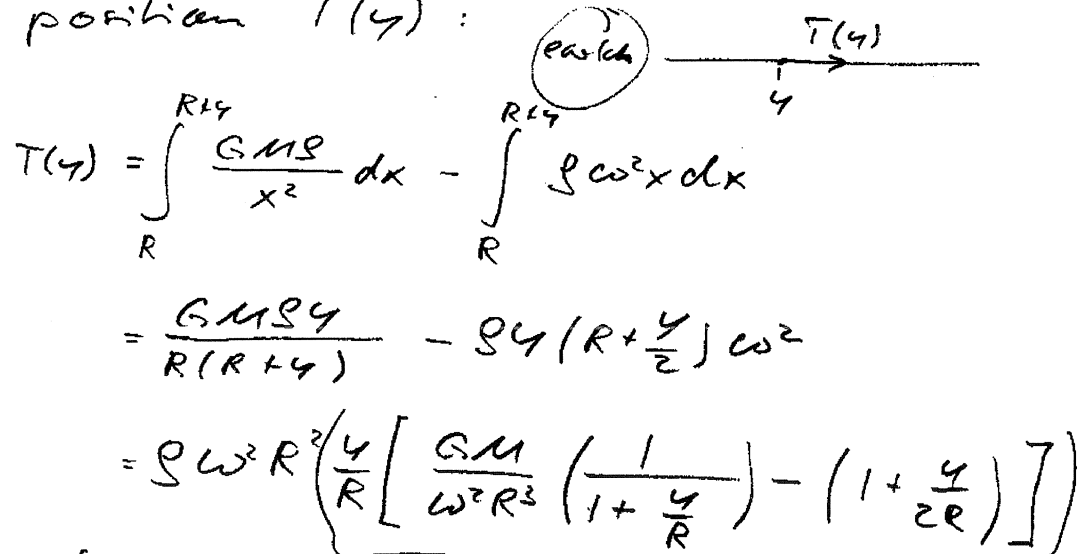 position T(y) :
earth
T(y)
y
T(y) = ∫_R^{R+y} \frac{GMρ}{x²} dx - ∫_R^{R+y} ρω²x dx
= \frac{GMρy}{R(R+y)} - ρy(R+\frac{y}{2})ω²
= ρω²R²(\frac{y}{R}[\frac{GM}{ω²R³}(\frac{1}{1+\frac{y}{R}}) - (1+\frac{y}{2R})])